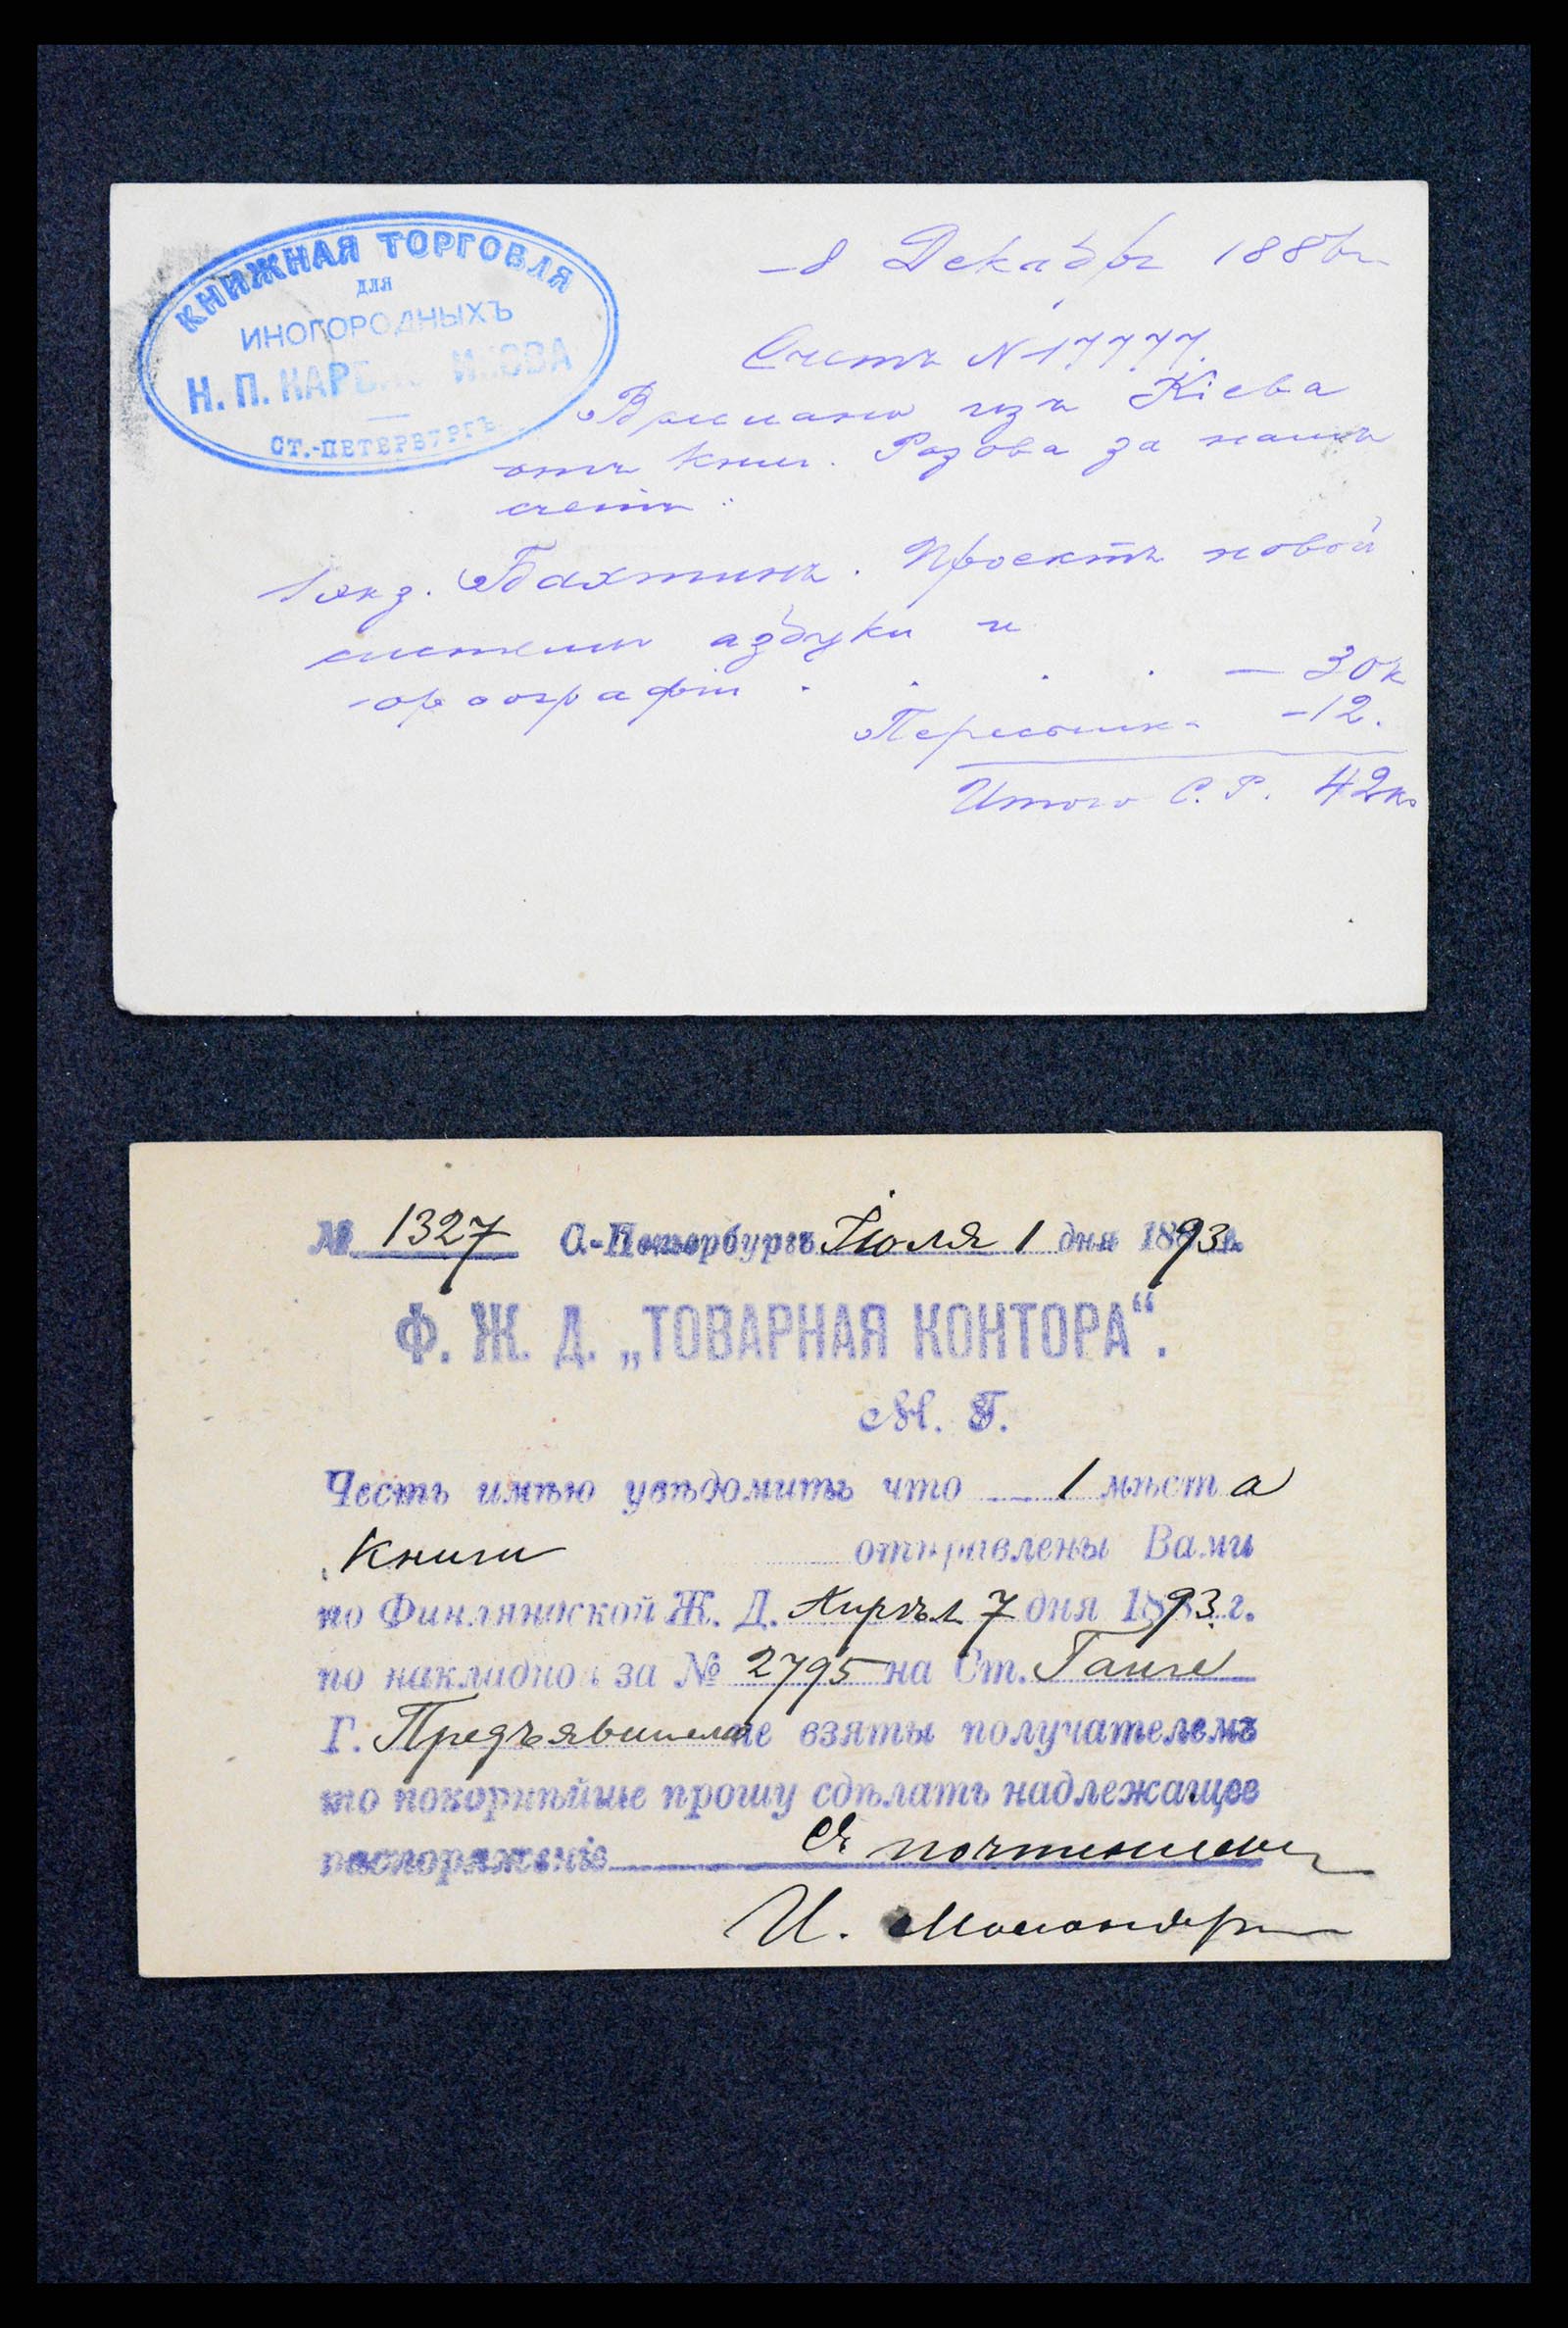 КНИЖНАЯ ТОРГОВЛЯ
для
ИНОГОРОДНЫХЪ
Н. П. КАР
СТ.-ПЕТЕРБУРГЪ
8 Декабря 1886 г.
Счетъ N 17777.
изъ Кіева
отъ книг. Розова за нашъ
счетъ:
1 экз. Бахтинъ. Проектъ новой
системы азбуки и
орѳографіи . . . — 30 к
Пересылка - 12.
Итого С. Р. 42 к.
№ 1327 С.-Петербургъ Іюля 1 дня 1893 г.
Ф. Ж. Д. „ТОВАРНАЯ КОНТОРА“.
М. Г.
Честь имѣю увѣдомить что 1 мѣста
Книги отправлены Вами
по Финляндской Ж. Д. 7 дня 1893 г.
по накладной за № 2795 на Ст. Ганге
Г. Предъявителя не взяты получателемъ
то покорнѣйше прошу сдѣлать надлежащее
распоряженіе Съ почтеніемъ
И.